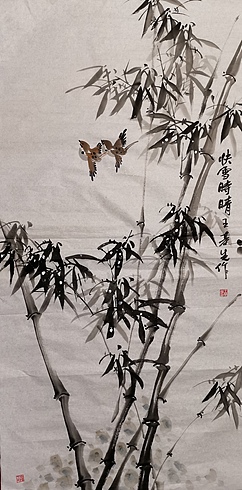 快雪時晴王君生作